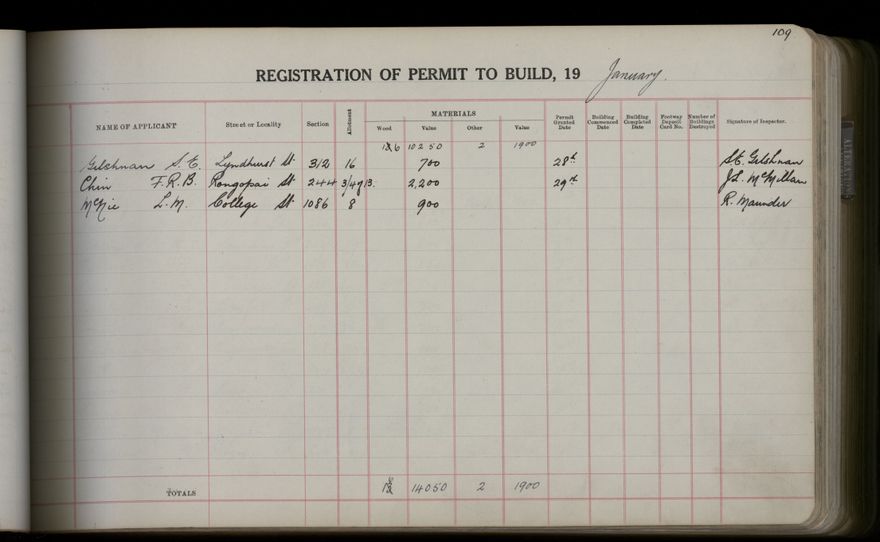 109
REGISTRATION OF PERMIT TO BUILD, 19 January.
NAME OF APPLICANT Street or Locality Section Allotment MATERIALS Wood Value Other Value Permit Granted Date Building Commenced Date Building Completed Date Footway Deposit Card No. Number of Buildings Destroyed Signature of Inspector.
10250 2 1900
Gilshnan S. E. Lyndhurst St 312 16 700 28th S.E. Gilshnan
Chin F.R.B. Rongopai St 244 2,200 29th J.L. McMillan
McNie L.M. College St 1086 8 900 R. Maunder
TOTALS 14050 2 1900